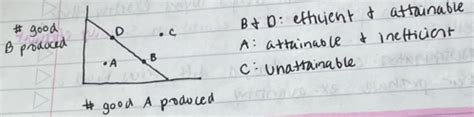 # good
B produced
D
C
A
B
# good A produced
B & D: efficient & attainable
A: attainable & inefficient
C: unattainable